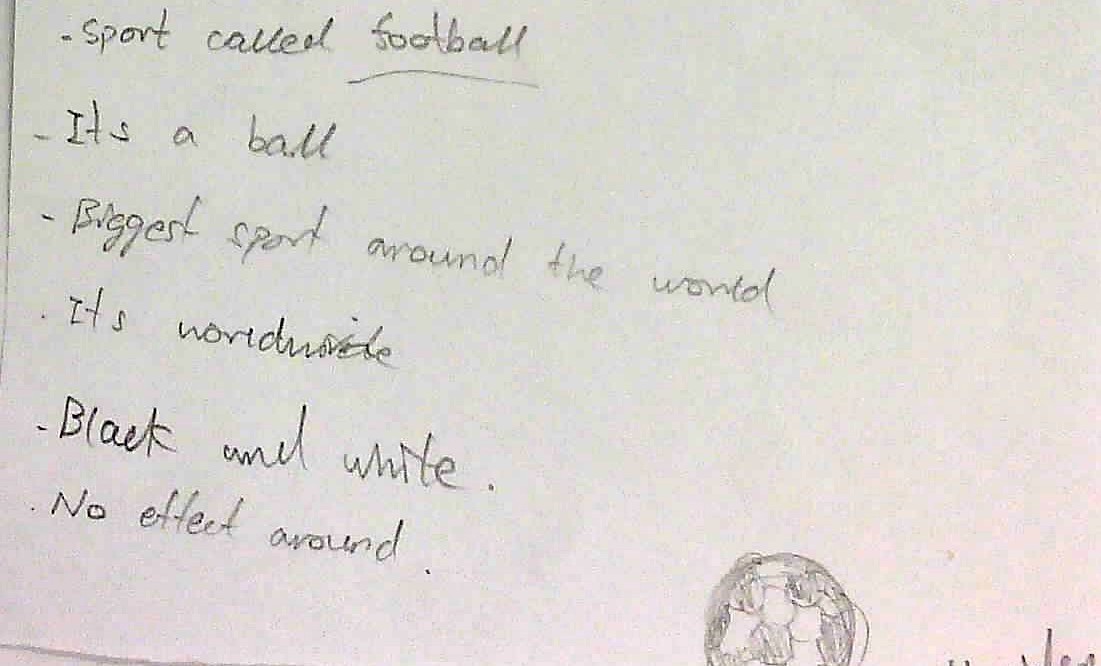 - Sport called football
- Its a ball
- Biggest sport around the world
. Its worldwide
- Black and white.
. No effect around.